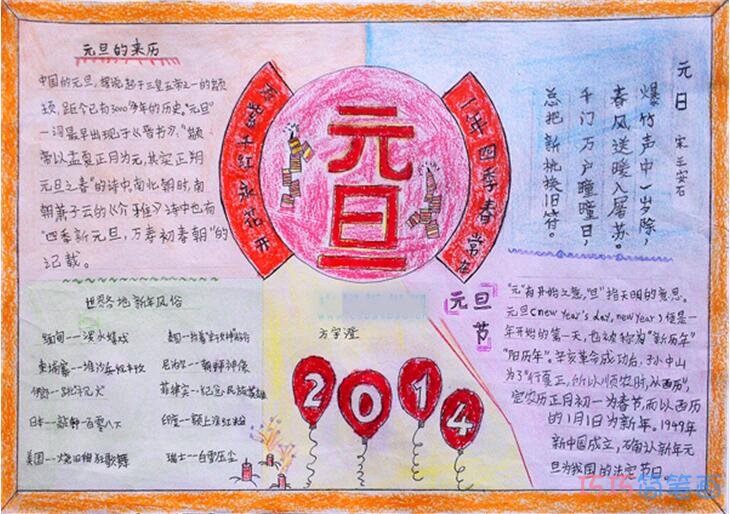 元旦的来历
中国的元旦，据说起于三皇五帝之一的颛
顼，距今已有3000多年的历史。"元旦"
一词最早出现于《晋书》："颛
帝以孟夏正月为元，其实正朔
元旦之春"的诗中。南北朝时，南
朝萧子云的《介雅》诗中也有
"四季新元旦，万寿初春朝"的
记载。
万紫千红永花开
元旦
一年四季春常在
元日 宋 王安石
爆竹声中一岁除，
春风送暖入屠苏。
千门万户曈曈日，
总把新桃换旧符。
世界各地新年风俗
缅甸---泼水嬉戏
柬埔寨---堆沙丘
伊朗---跳
日本---敲钟一百零八下
美国---烧旧烛狂歌舞
泰国---
尼泊尔---朝拜神像
菲律宾---纪念民族英雄
印度---额上涂红粉
瑞士---白雪压尘
方宇澄
2014
元旦节
"元"有开始之意，"旦"指天明的意思。
元旦（new Year's day, new Year）便是一
年开始的第一天，也被称为"新历年"
"阳历年"。辛亥革命成功后，孙中山
为了"行夏正，所以顺农时，从西历"，
定农历正月初一为春节，而以西历
的1月1日为新年。1949年
新中国成立，确认新年元
旦为我国的法定节日。
巧巧简笔画